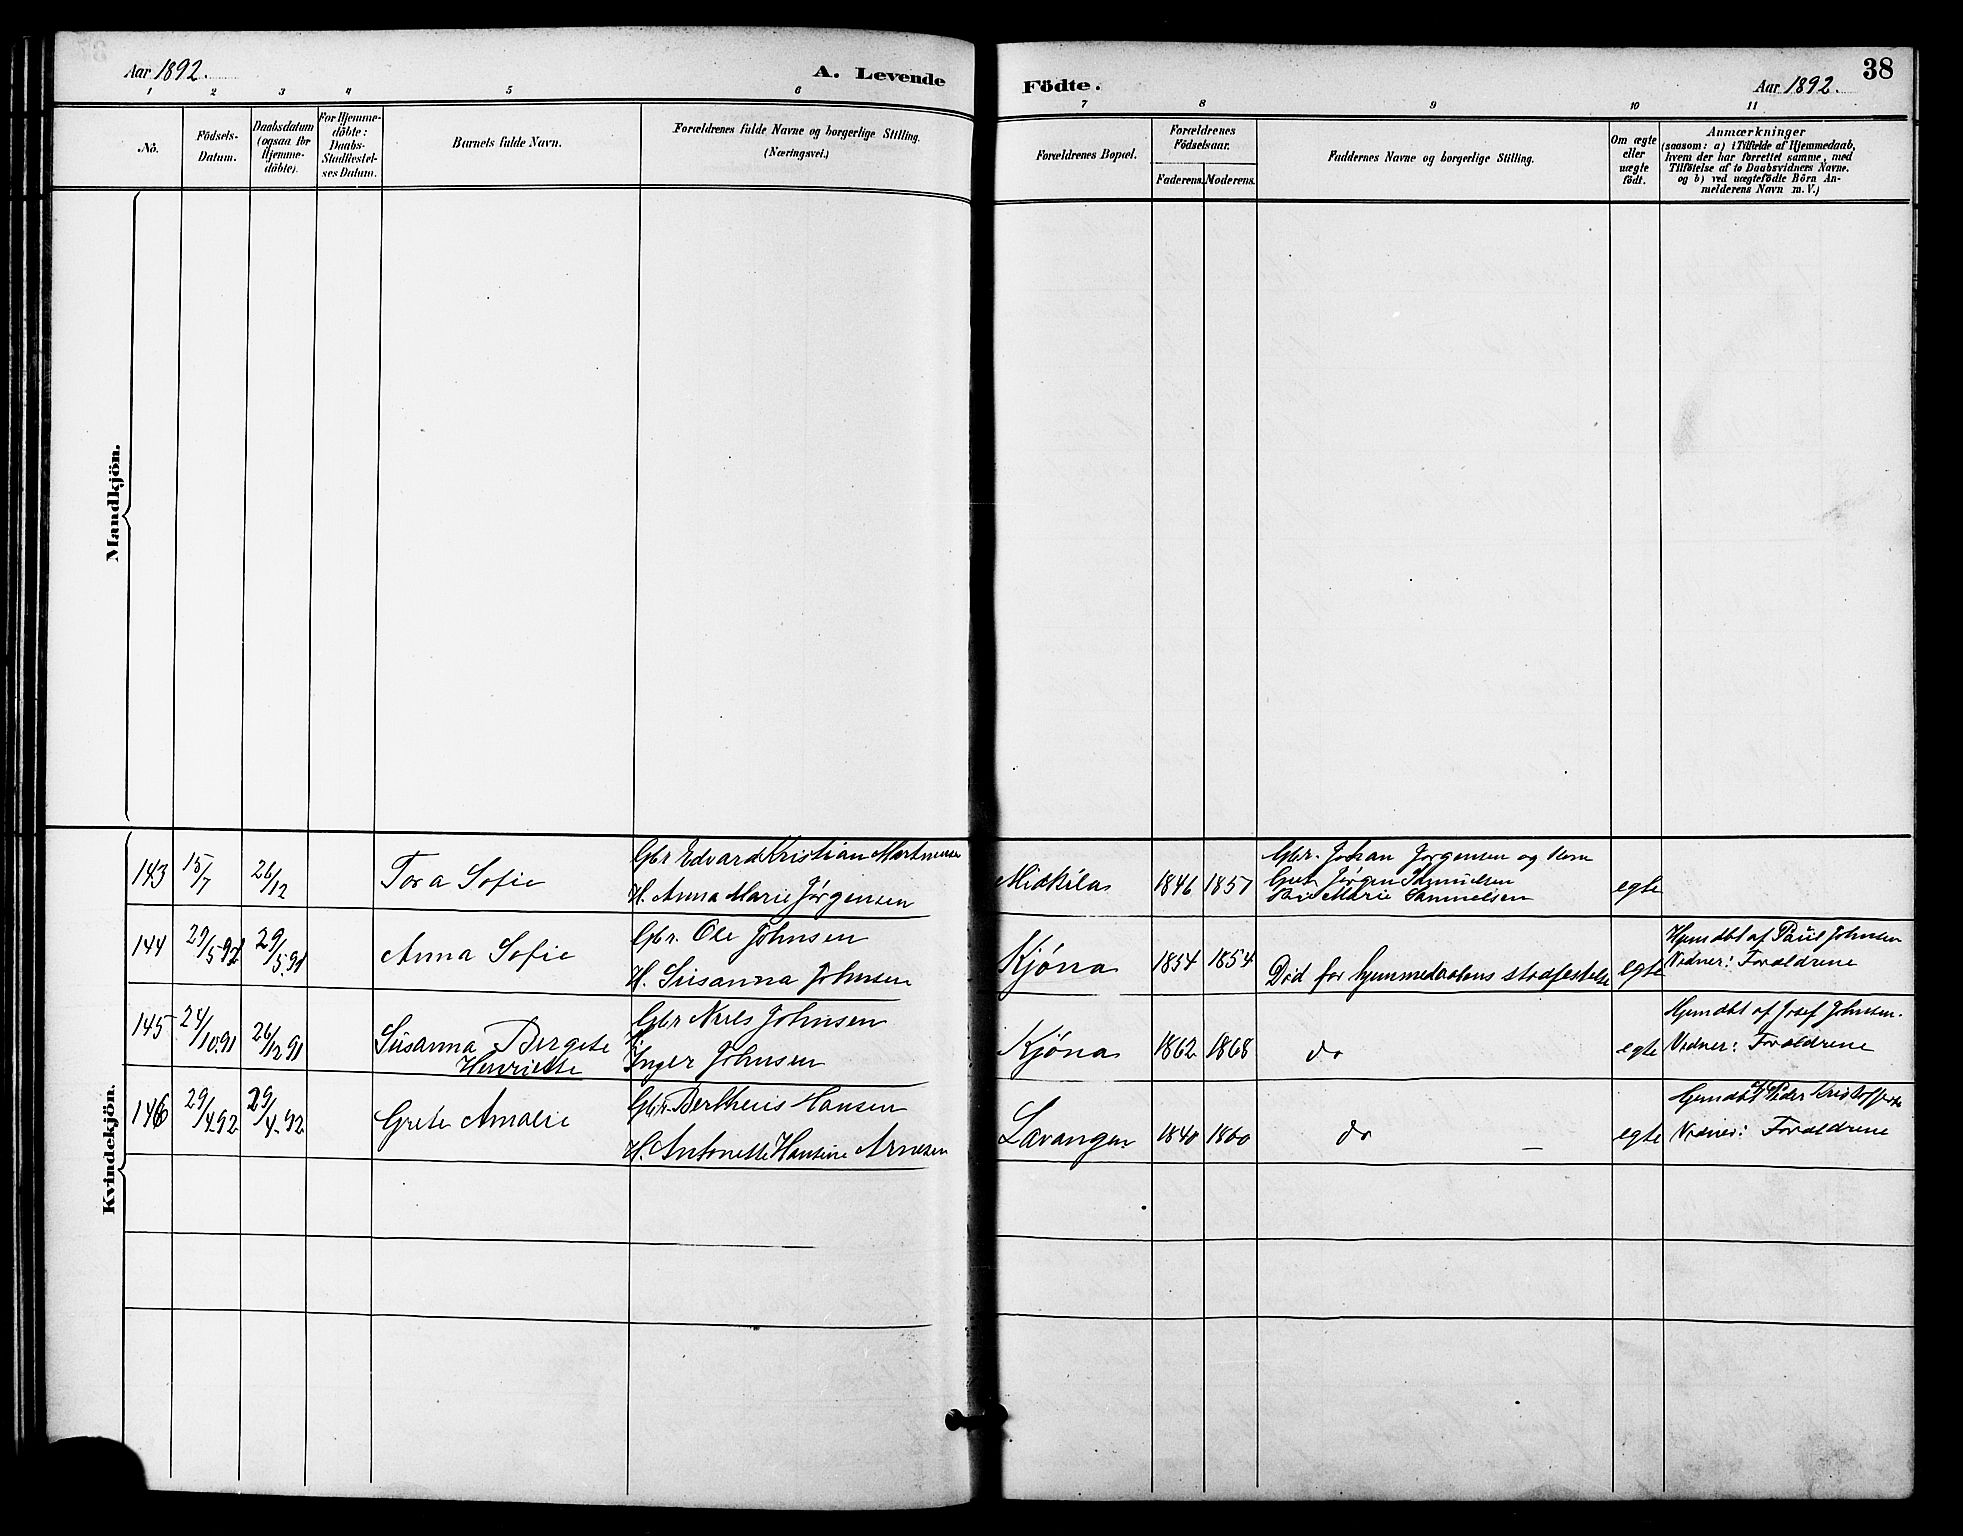 Aar 1892.
A. Levende
Födte.
Aar 1892.
38
1 2 3 4 5 6 7 8 9 10 11
No.
Födsels-
Datum.
Daabsdatum
(ogsaa for
Hjemme-
döbte).
For Hjemme-
döbte:
Daabs-
Stadfæstel-
ses Datum.
Barnets fulde Navn.
Forældrenes fulde Navne og borgerlige Stilling.
(Næringsvei.)
Forældrenes Bopæl.
Forældrenes
Födselsaar.
Faderens. Moderens.
Faddernes Navne og borgerlige Stilling.
Om ægte
eller
uægte
födt.
Anmærkninger
(saasom: a) i Tilfælde af Hjemmedaab,
hvem der har forrettet samme, med
Tilföielse af to Daabsvidners Navne.
og b) ved uægtefödte Börn An-
melderens Navn m. V.)
Mandkjön.
Kvindekjön.
143 15/7 26/12 Tora Sofie
Gbr Edvard Kristian Martinsen
H. Anna Marie Jørgensen
1846 1857
Gbr. Johan Jørgensen og Kone
Jørgen Samuelsen
Marie Samuelsen
egte
144 29/5 92 29/5 91 Anna Sofie
Gbr. Ole Johnsen
H. Susanna Johnsen
Kjøna 1854 1854
Død før hjemmedaabens stadfestelse
egte
Hjemdbt af Paul Johnsen
Vidner: Forældrene
145 24/10 91 26/12 91 Susanna Bergete
Henriette
Gbr Niels Johnsen
H. Inger Johnsen
Kjøna 1862 1868 do egte
Hjemdbt af Josef Johnsen.
Vidner: Forældrene
146 29/4 92 29/4 92 Grete Amalie
Gbr. Bertheus Hansen
H. Antonette Hansine Arnesen
Lavangen 1840 1860 do — egte
Hjemdbt af Peder
Vidner: Forældrene